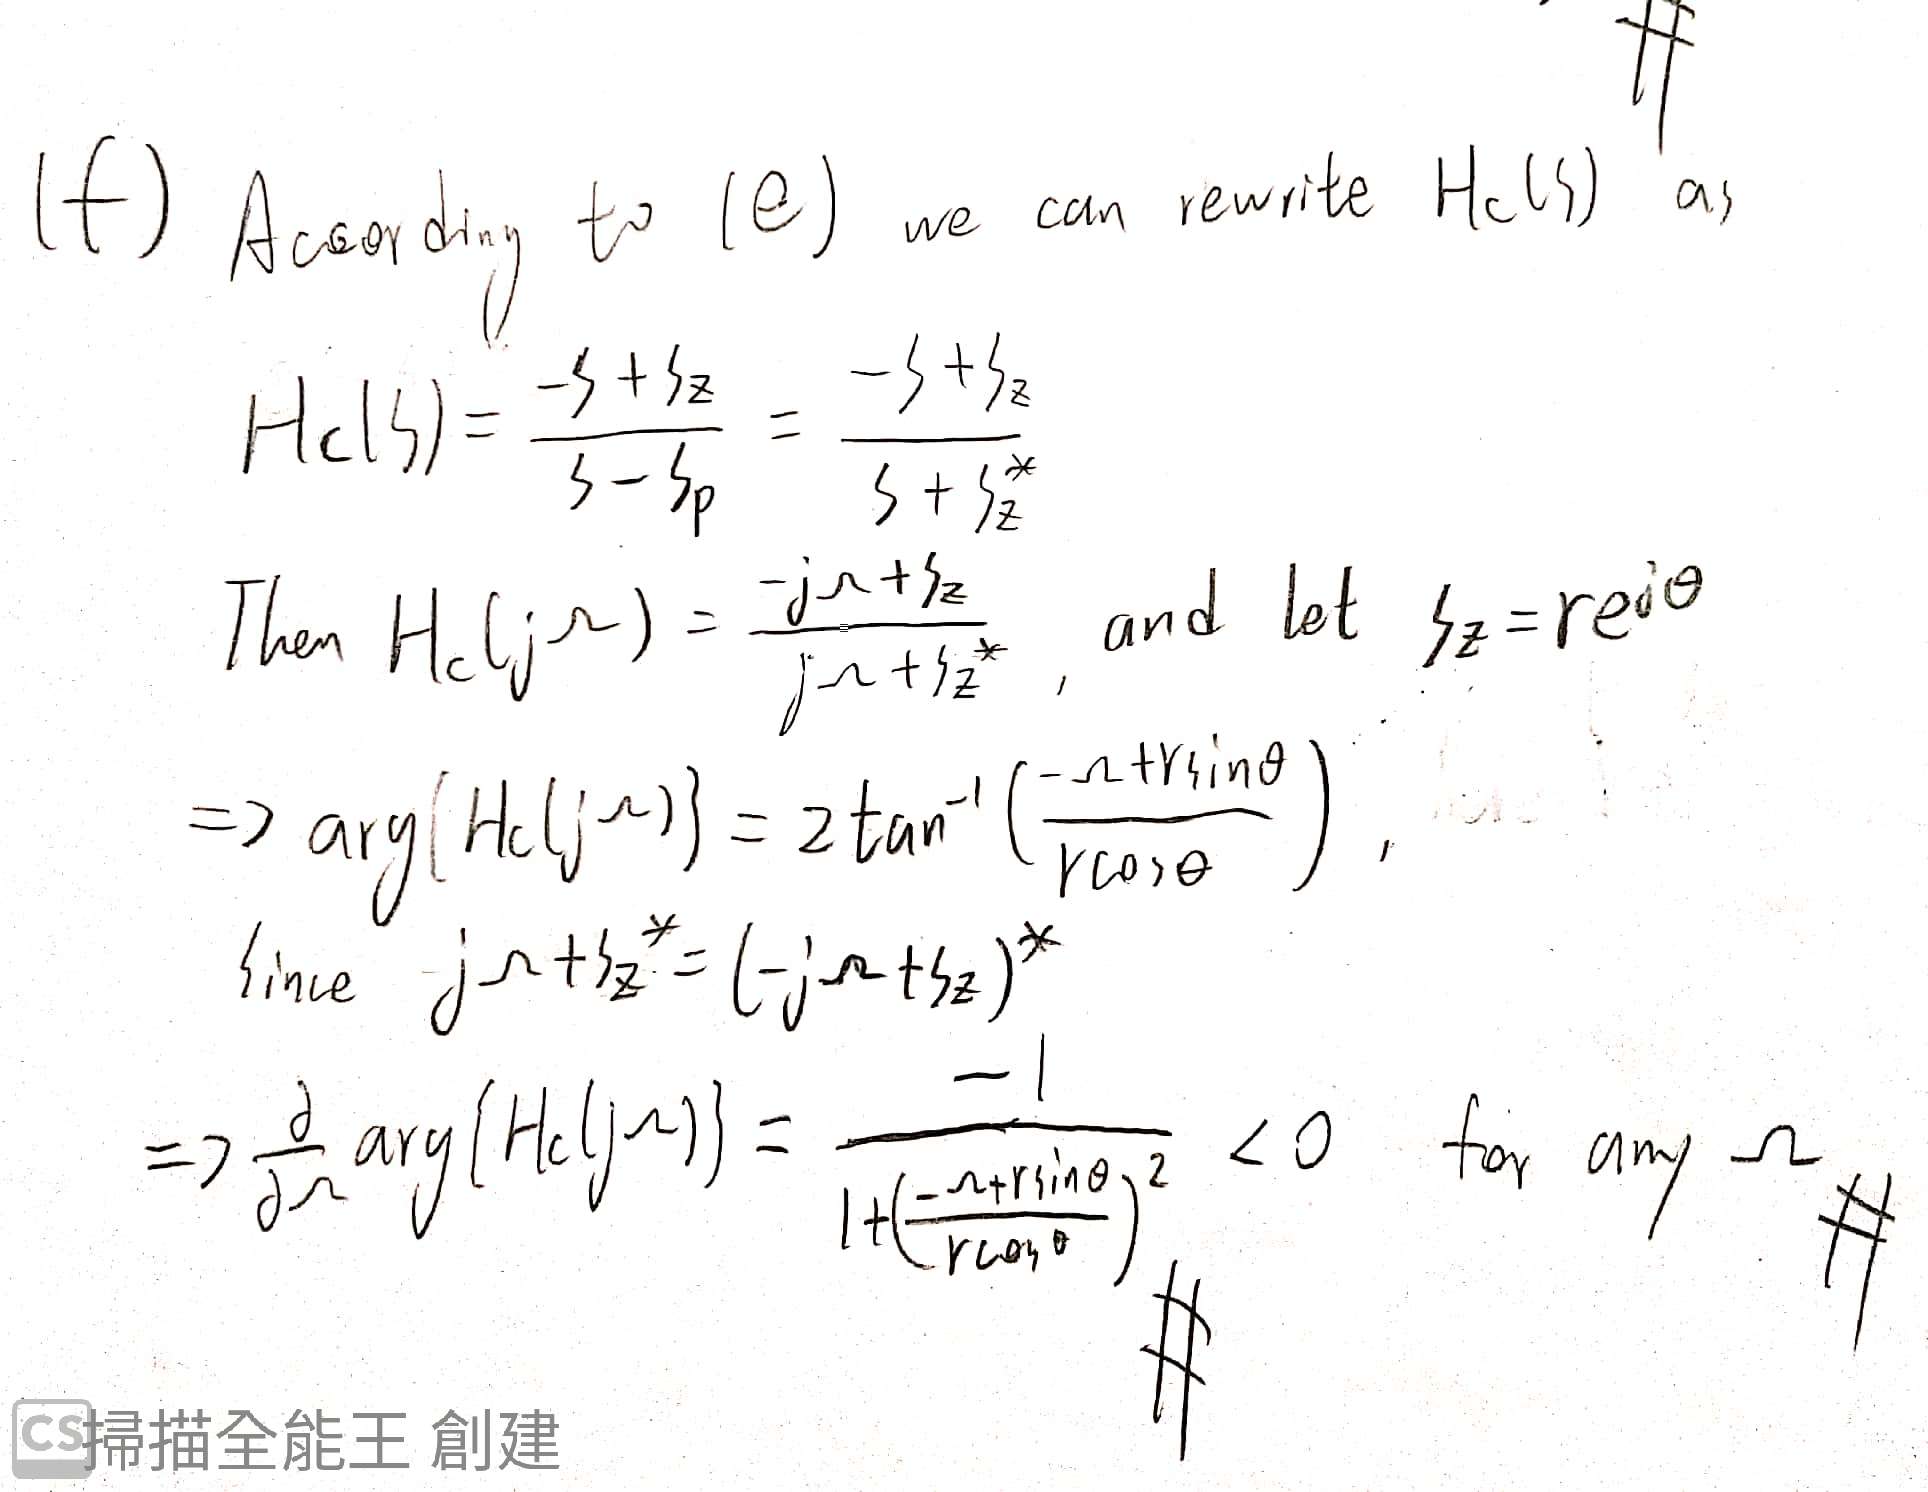 #
(f) According to (e) we can rewrite Hc(s) as
Hc(s) = (-s + s_z)/(s - s_p) = (-s + s_z)/(s + s_z^*)
Then Hc(jΩ) = (-jΩ + s_z)/(jΩ + s_z^*), and let s_z = re^{jθ}
=> arg{Hc(jΩ)} = 2 tan^{-1}((-Ω + r sinθ)/(r cosθ)),
since jΩ + s_z^* = (-jΩ + s_z)^*
=> ∂/∂Ω arg{Hc(jΩ)} = -1/(1 + ((-Ω + r sinθ)/(r cosθ))^2) < 0 for any Ω #
#
CS掃描全能王 創建